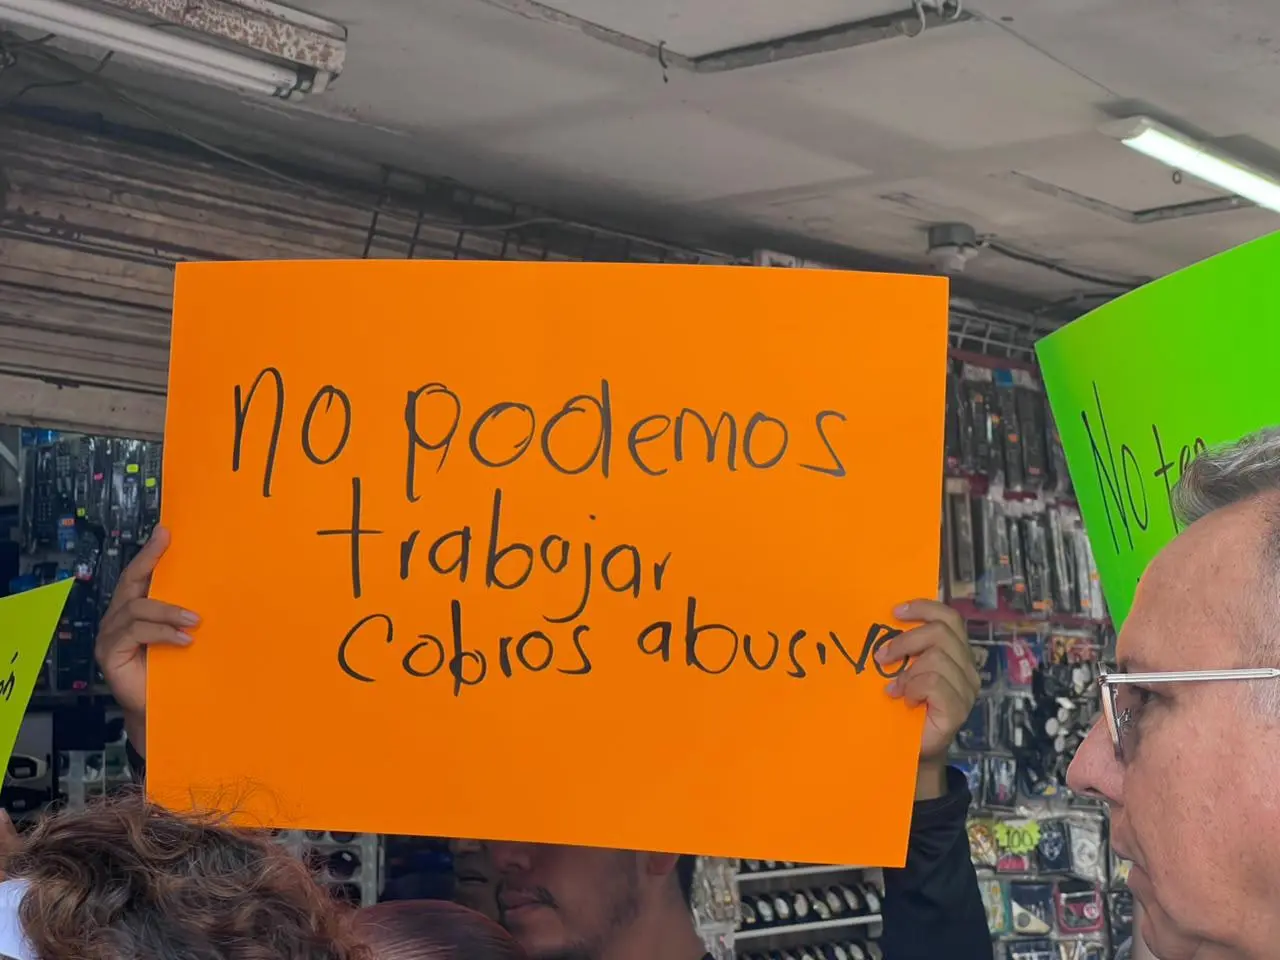 no podemos
trabajar
cobros abusivo
No
100